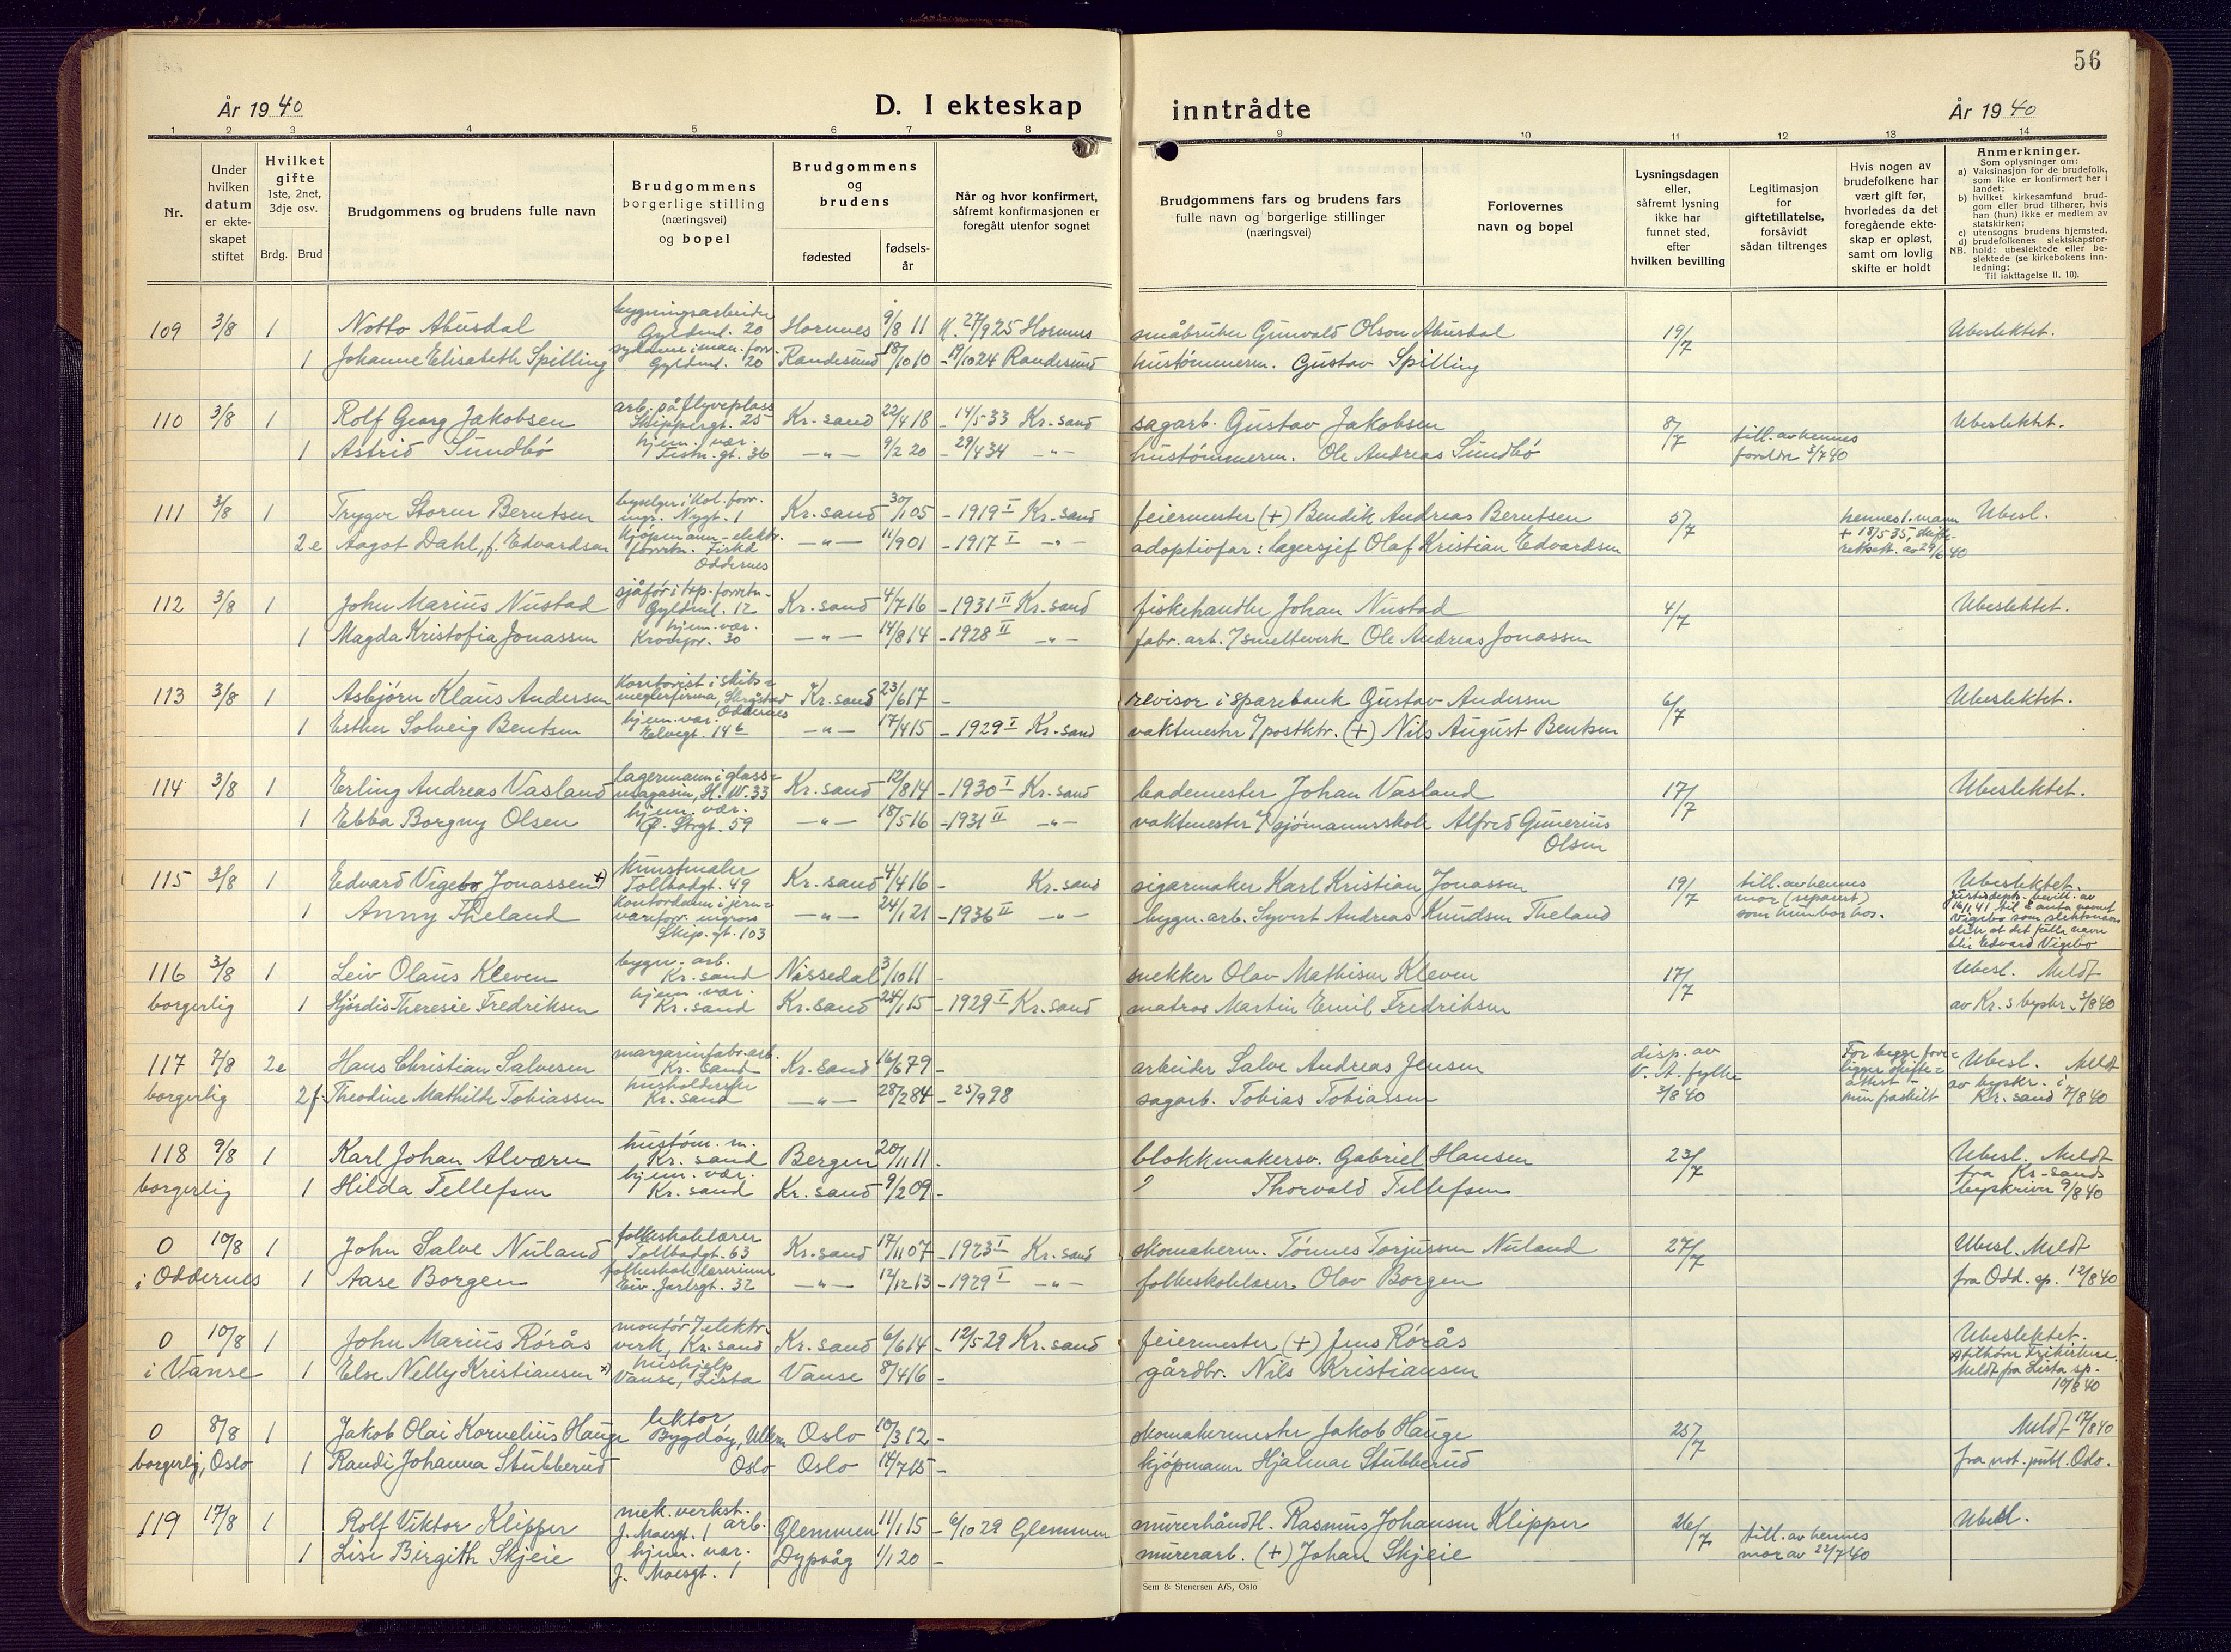 56
År 1940
D. I ekteskap
inntrådte
År 1940
1 2 3 4 5 6 7 8 9 10 11 12 13 14
Nr.
Under hvilken datum er ekteskapet stiftet
Hvilket gifte 1ste, 2net, 3dje osv.
Brdg. Brud
Brudgommens og brudens fulle navn
Brudgommens borgerlige stilling (næringsvei) og bopel
Brudgommens og brudens
fødested
fødsels-år
Når og hvor konfirmert, såfremt konfirmasjonen er foregått utenfor sognet
Brudgommens fars og brudens fars fulle navn og borgerlige stillinger (næringsvei)
Forlovernes navn og bopel
Lysningsdagen eller, såfremt lysning ikke har funnet sted, efter hvilken bevilling
Legitimasjon for giftetillatelse, forsåvidt sådan tiltrenges
Hvis nogen av brudefolkene har vært gift før, hvorledes da det foregående ekteskap er opløst, samt om lovlig skifte er holdt
Anmerkninger.
Som oplysninger om:
a) Vaksinasjon for de brudefolk, som ikke er konfirmert her i landet;
b) hvilket kirkesamfund brudgom eller brud tilhører, hvis han (hun) ikke er medlem av statskirken;
c) utensogns brudens hjemsted.
d) brudefolkenes slektskapsforhold: ubeslektede eller beslektede (se kirkebokens innledning;
NB. Til iakttagelse II, 10).
109 3/8 1 Notto Abusdal bygningsarbeider Gyldenl. 20 Hornnes 9/8 11 K. 27/9 25 Hornnes småbruker Gunvald Olson Abusdal 19/7 Ubeslektet.
1 Johanne Elisabeth Spilling Gyldenl. 20 Randesund 18/10 10 - 19/10 24 Randesund hustømmerm. Gustav Spilling
110 3/8 1 Rolf Georg Jakobsen arb. på flyveplass Skippergt. 25 Kr.sand 22/4 18 - 14/5 33 Kr.sand sagarb. Gustav Jakobsen 8/7 till. av hennes foreldre 3/7 40 Ubeslektet.
1 Astrid Sundbø hjem. vær. Festn.gt. 36 -"- 9/2 20 - 29/4 34 -"- hustømmerm. Ole Andreas Sundbø
111 3/8 1 Trygve Storm Berntsen Nygt. 1 Kr.sand 30/1 05 - 1919 I Kr.sand feiermester (+) Bendik Andreas Berntsen 5/7 hennes 1. mann + 18/5 35, skifterettsatt. av 29/6 40 Ubesl.
2e Aagot Dahl, f. Edvardsen Kjøpmann - elektr. forretn. Fiskå Oddernes -"- 11/9 01 - 1917 I -"- adoptivfar: lagersjef Olaf Kristian Edvardsen
112 3/8 1 John Marius Nustad sjåfør i tep. forretn. Gyldenl. 12 Kr.sand 4/7 16 - 1931 II Kr.sand fiskehandler Johan Nustad 4/7 Ubeslektet.
1 Magda Kristofia Jonassen hjem. vær. Kronpr. 30 -"- 14/8 14 - 1928 II -"- fabr. arb. v/ smelteverk Ole Andreas Jonassen
113 3/8 1 Asbjørn Klaus Andersen kontorist i skibsmeglerfirma, Oddernes Kr.sand 23/6 17 - revisor i sparebank Gustav Andersen 6/7 Ubeslektet.
1 Esther Solveig Bentsen hjem. vær. Elvegt. 14 b -"- 17/4 15 - 1929 I Kr.sand vaktmester v/ postktr. (+) Nils August Bentsen
114 3/8 1 Erling Andreas Vasland lagermann i glassmagasin, H. W. 33 Kr.sand 12/8 14 - 1930 I Kr.sand bademester Johan Vasland 17/7 Ubeslektet.
1 Ebba Borgny Olsen hjem. vær. Ø. Strgt. 59 -"- 18/5 16 - 1931 II -"- vaktmester v/ sjømannsskole Alfred Gunerius Olsen
115 3/8 1 Edvard Vigebo Jonassen +) kunstmaler Tollbodgt. 49 Kr.sand 4/4 16 - Kr.sand sigarmaker Karl Kristian Jonassen 19/7 till. av hennes mor (separert) som hun bor hos. Ubeslektet.
Justisdepts. bevill. av 16/1 41 til å anta navnet Vigebo som slektsnavn slik at det fulle navn blir Edvard Vigebo
1 Anny Theland kontordame i jernvareforr. engros Skip.gt. 103 -"- 24/1 21 - 1936 II -"- bygn. arb. Syvert Andreas Knudsen Theland
116 3/8 1 Leiv Olaus Kleven bygn. arb. Kr.sand Nissedal 3/10 11 - snekker Olav Mathisen Kleven 17/7 Ubesl. Meldt
borgerlig 1 Hjørdis Theresie Fredriksen hjem. vær. Kr.sand Kr.sand 24/1 15 - 1929 I Kr.sand matros Martin Emil Fredriksen av Kr.s byskr. 3/8 40
117 7/8 2e Hans Christian Salvesen margarinfabr. arb. Kr.sand Kr.sand 16/6 79 - arbeider Salve Andreas Jensen disp. av V. A. fylke 3/8 40 For begge foreligger skifteattest - hun fraskilt Ubesl. Meldt av byskr. i Kr.sand 7/8 40
borgerlig 2f. Theodine Mathilde Tobiassen husholderske Kr.sand -"- 28/2 84 - 25/9 98 sagarb. Tobias Tobiassen
118 9/8 1 Karl Johan Alvørn hustøm. m. Kr.sand Bergen 20/11 11 - blokkmakersv. Gabriel Hansen 23/7 Ubesl. Meldt fra Kr.sands byskriver 9/8 40
borgerlig 1 Hilda Tellefsen hjem. vær. Kr.sand Kr.sand 9/2 09 - ? Thorvald Tellefsen
0 10/8 1 John Salve Nuland folkeskolelærer Tollbodgt. 63 Kr.sand 17/11 07 - 1923 I Kr.sand skomakerm. Tønnes Torjussen Nuland 27/7 Ubesl. Meldt
i Oddernes 1 Aase Borgen folkeskolelærerinne Eiv. Jarlsgt. 32 -"- 12/12 13 - 1929 I -"- folkeskolelærer Olav Borgen fra Odd. sp. 12/8 40
0 10/8 1 John Marius Rørås montør v/ elektr. verk, Kr.sand Kr.sand 6/6 14 - 12/5 29 Kr.sand feiermester (+) Jens Rørås Ubeslektet.
i Vanse 1 Else Nelly Kristiansen +) hushjelp Vanse, Lista Vanse 8/4 16 - gårdbr. Nils Kristiansen +) tilhører Frikirken. Meldt fra Lista sp. 10/8 40
0 8/8 1 Jakob Olai Kornelius Hauge lektor Bygdøy, Ullern Oslo 10/3 12 - skomakermester Jakob Hauge 25/7 Meldt 17/8 40
borgerlig, Oslo 1 Randi Johanna Stubberud Oslo Oslo 14/7 15 - kjøpmann Hjalmar Stubberud fra not. publ. Oslo.
119 17/8 1 Rolf Viktor Klipper mek. verkst. arb. J. Moesgt. 1 Glemmen 11/1 15 - 6/10 29 Glemmen murerhåndtl. Rasmus Johansen Klipper 26/7 till. av hennes mor av 22/7 40 Ubesl.
1 Lise Birgith Skjeie hjem. vær. J. Moesgt. 1 Dypvåg 1/1 20 - murerarb. (+) Johan Skjeie
Sem & Stenersen A/S, Oslo